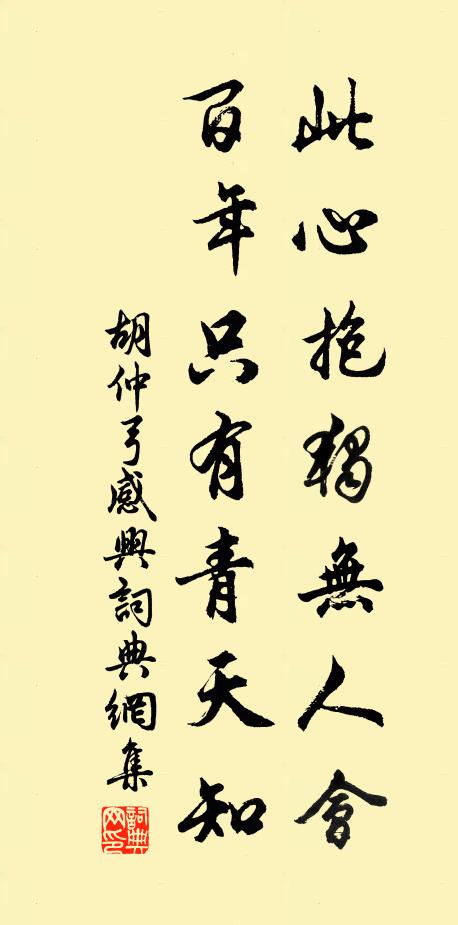 此心抱獨無人會
百年只有青天知
胡仲弓感興詞典網集
詞典网印